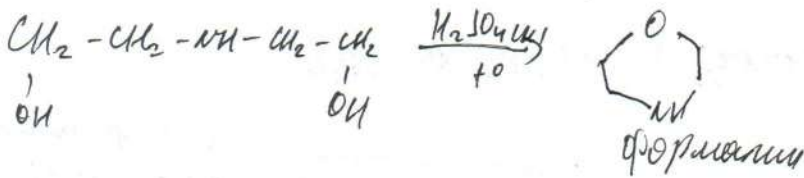 CH₂ - CH₂ - NH - CH₂ - CH₂ H₂SO₄(к) O
OH OH t° NH
формалин